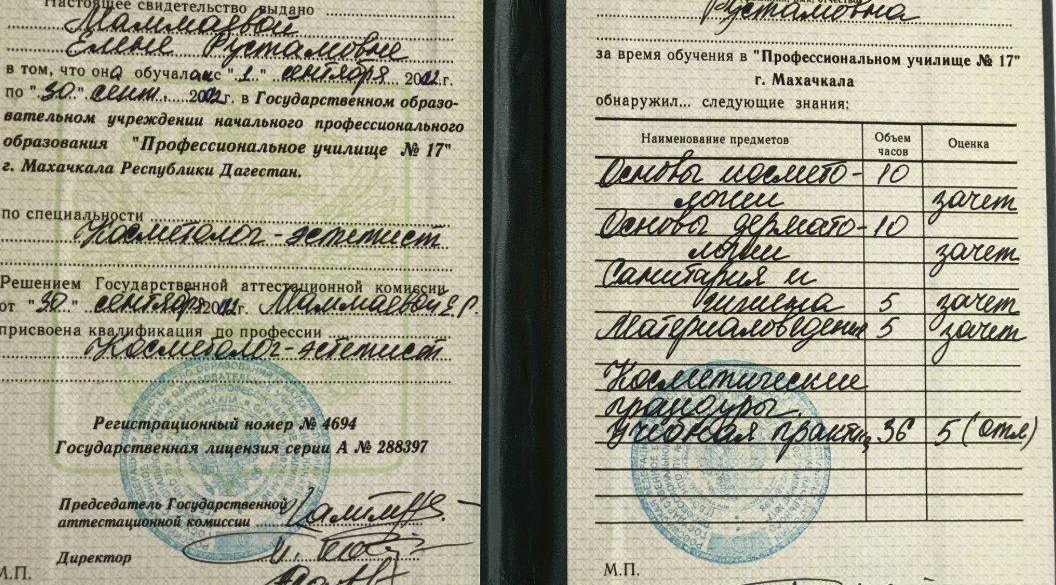 Настоящее свидетельство выдано
Маммаевой
Елене Рустамовне
в том, что она обучалась "1." сентября 2012 г.
по "30." сент. 2012 г. в Государственном образо-
вательном учреждении начального профессионального
образования "Профессиональное училище № 17"
г. Махачкала Республики Дагестан.
по специальности
Косметолог-эстетист
Решением Государственной аттестационной комиссии
от "30" сентября 2012 г. Маммаевой Е.Р.
присвоена квалификация по профессии
Косметолог-эстетист
Регистрационный номер № 4694
Государственная лицензия серии А № 288397
Председатель Государственной
аттестационной комиссии
Директор
М.П.
Рустамовна
за время обучения в "Профессиональном училище № 17"
г. Махачкала
обнаружил... следующие знания:
Наименование предметов Объем часов Оценка
Основы космето- 10
логии зачет
Основы дермато- 10
логии зачет
Санитария и
гигиена 5 зачет
Материаловедения 5 зачет
Косметические
процедуры.
Учебная практик 36 5 (отл)
М.П.